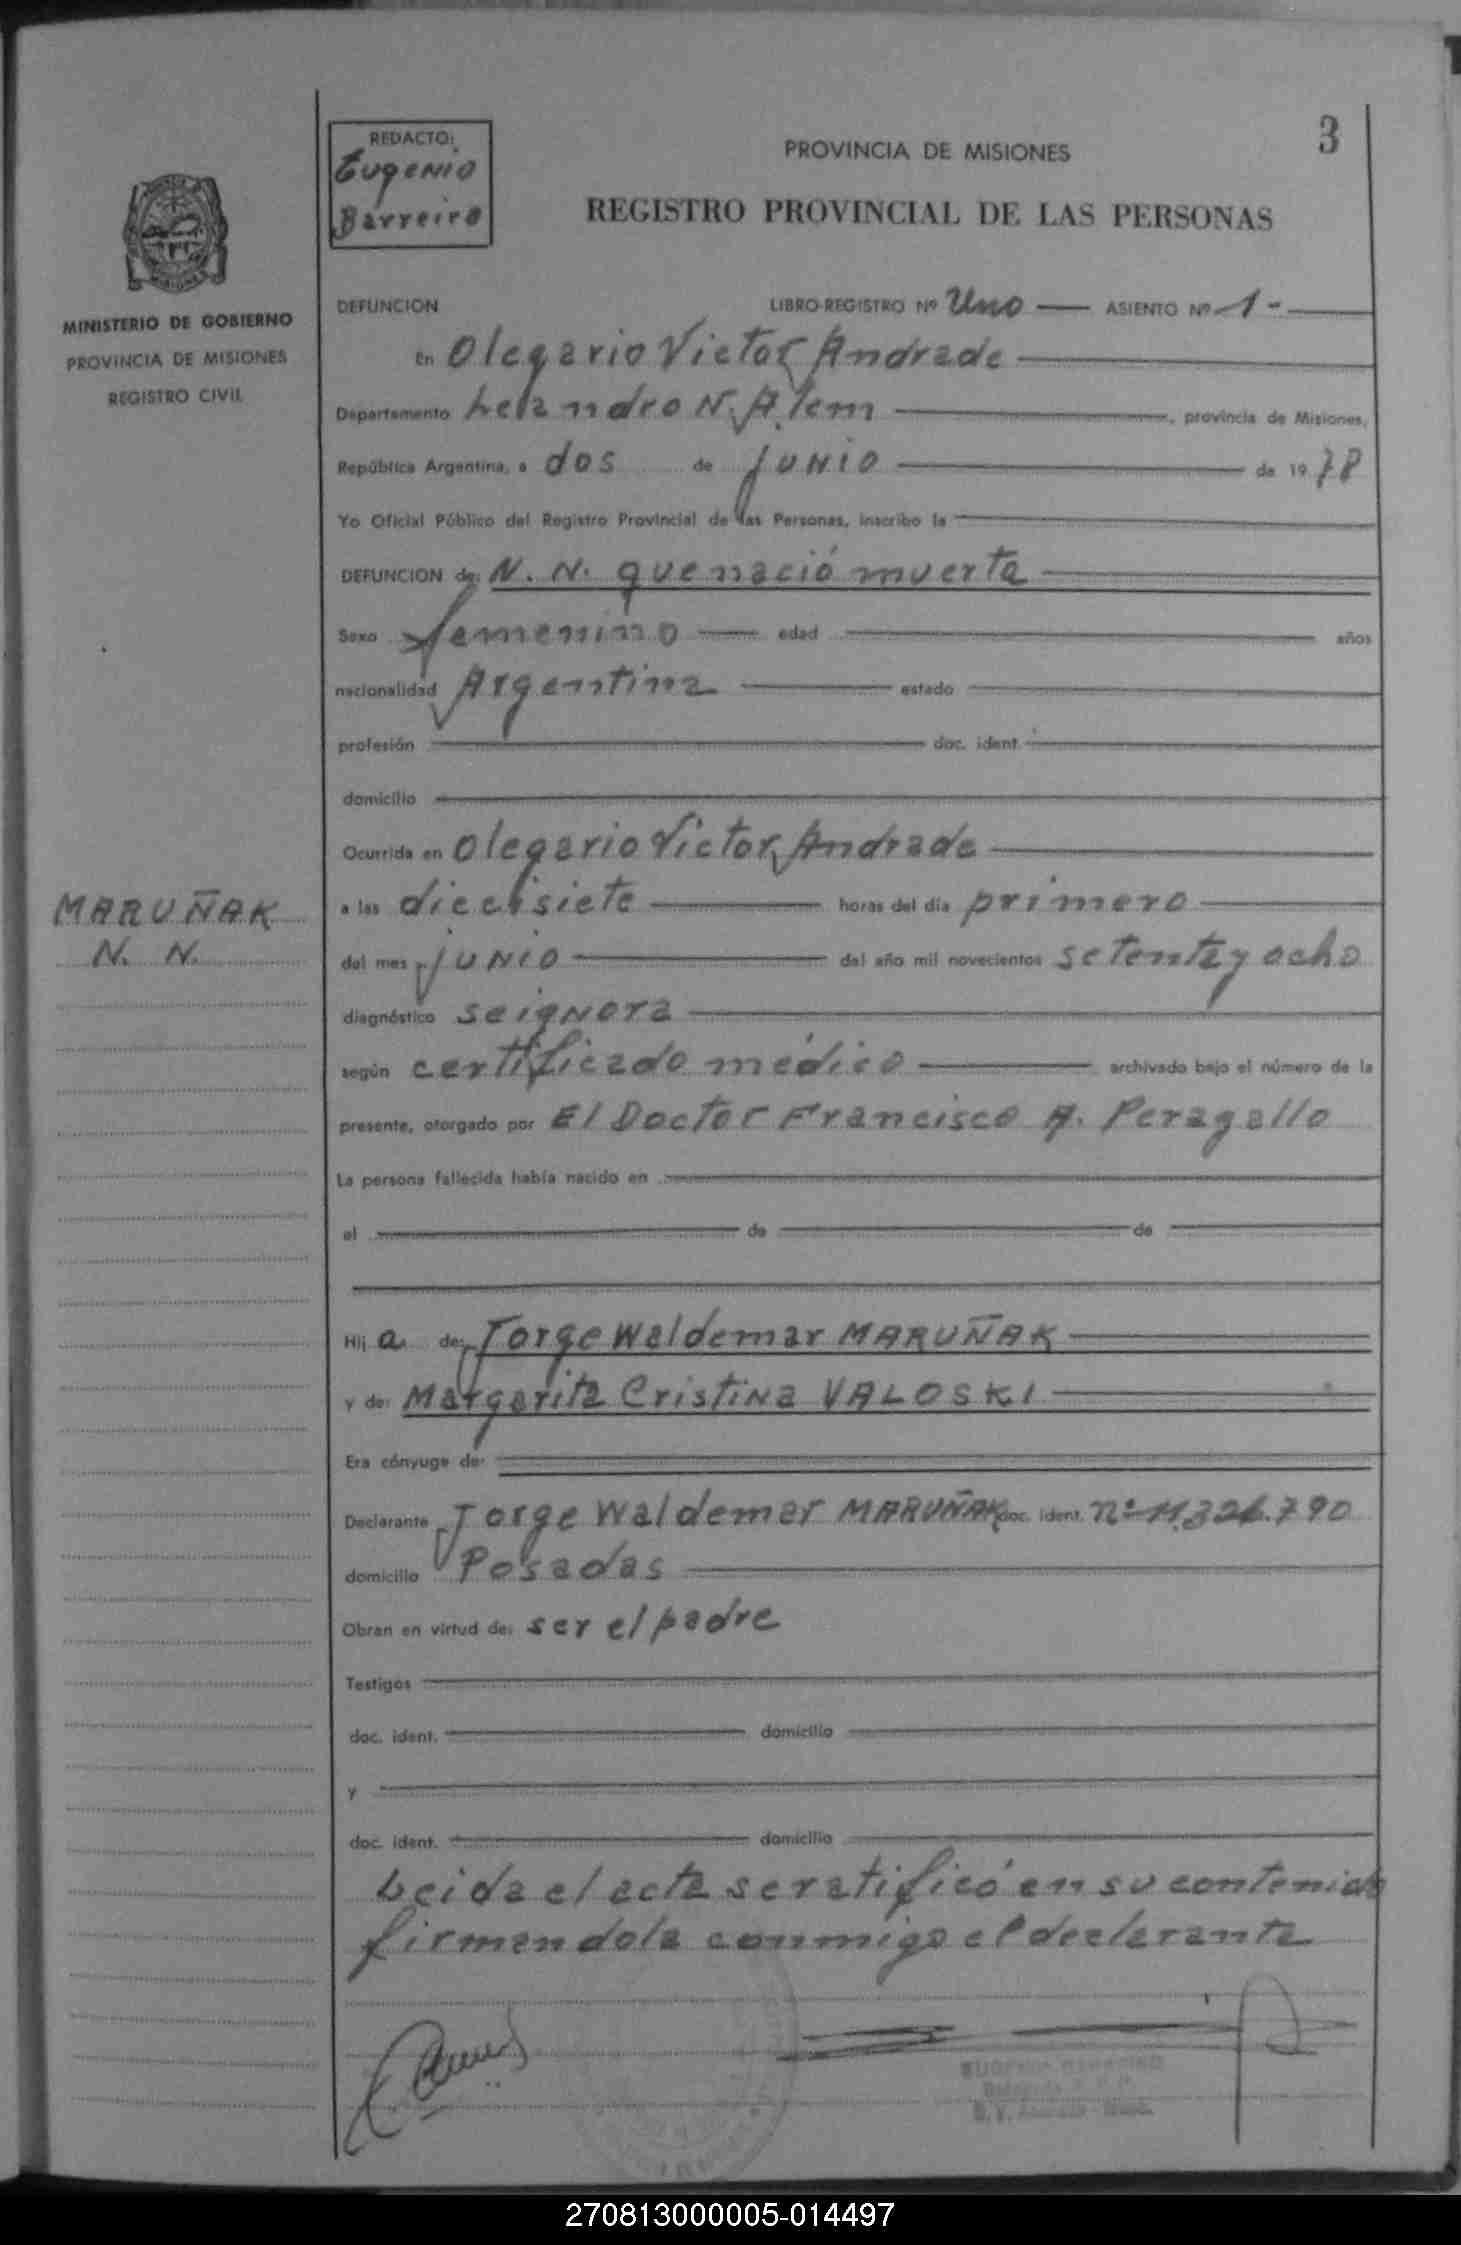 3
REDACTO:
Eugenio
Barreiro
PROVINCIA DE MISIONES
REGISTRO PROVINCIAL DE LAS PERSONAS
MINISTERIO DE GOBIERNO
PROVINCIA DE MISIONES
REGISTRO CIVIL
DEFUNCION LIBRO-REGISTRO Nº Uno ASIENTO Nº 1-
En Olegario Victor Andrade
Departamento Leandro N. Alem, provincia de Misiones,
República Argentina, a dos de junio de 1978
Yo Oficial Público del Registro Provincial de las Personas, inscribo la
DEFUNCION de: N. N. que nació muerta
Sexo femenino edad años
nacionalidad Argentina estado
profesión doc. ident.
domicilio
Ocurrida en Olegario Victor Andrade
MARUÑAK
N. N.
a las diecisiete horas del día primero
del mes junio del año mil novecientos setenta y ocho
diagnóstico se ignora
según certificado médico archivado bajo el número de la
presente, otorgado por El Doctor Francisco A. Peragallo
La persona fallecida había nacido en
el de de
Hij a de: Jorge Waldemar MARUÑAK
y de: Margarita Cristina VALOSKI
Era cónyuge de:
Declarante Jorge Waldemar MARUÑAK doc. ident. nº 11.326.790
domicilio Posadas
Obran en virtud de: ser el padre
Testigos
doc. ident. domicilio
y
doc. ident. domicilio
Leida el acta se ratificó en su contenido
firmandola conmigo el declarante
270813000005-014497